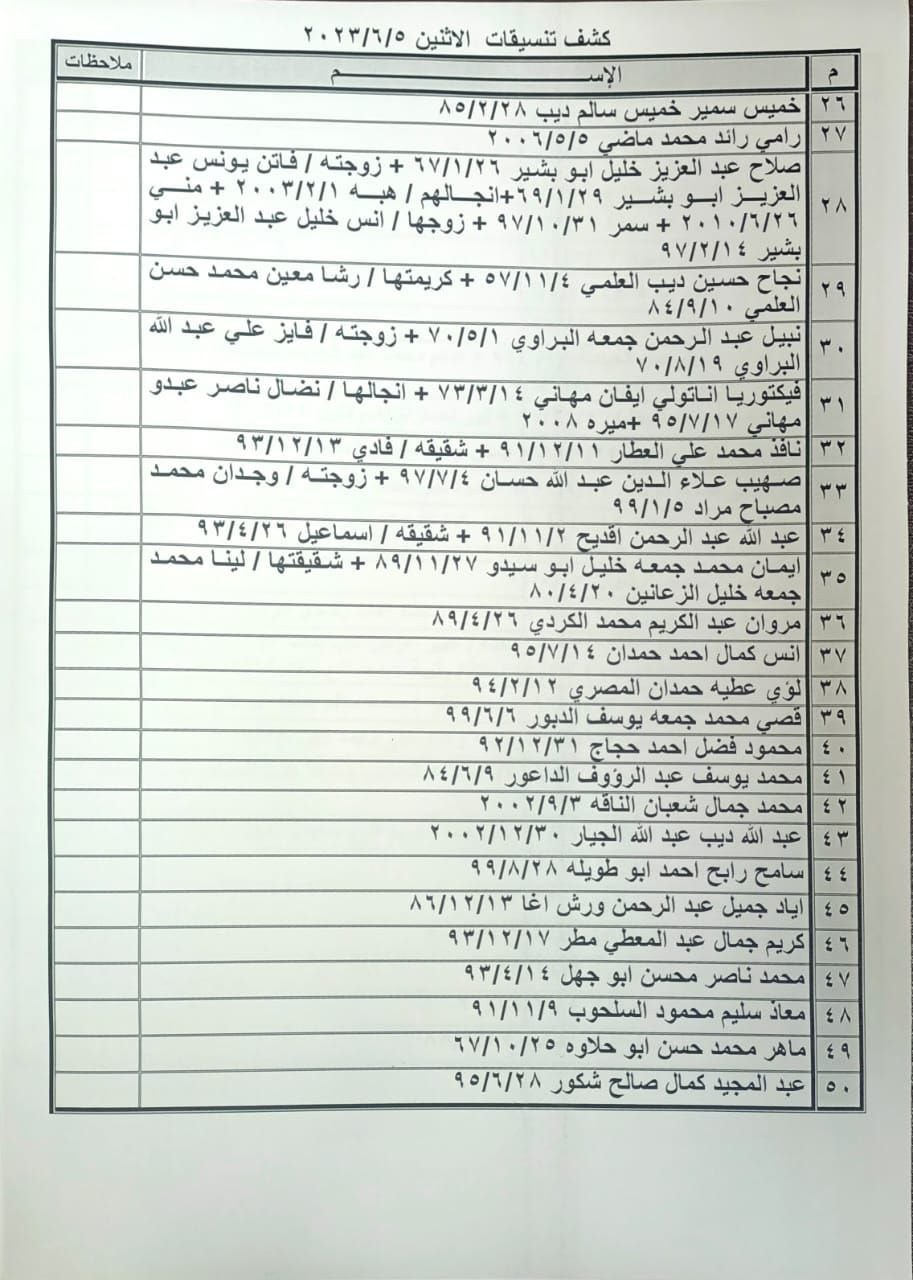 كشف تنسيقات الاثنين ٢٠٢٣/٦/٥
م الإســـــم ملاحظات
٢٦ خميس سمير خميس سالم ديب ٨٥/٢/٢٨
٢٧ رامي رائد محمد ماضي ٢٠٠٦/٥/٥
٢٨ صلاح عبد العزيز خليل ابو بشير ٦٧/١/٢٦ + زوجته / فاتن يونس عبد
العزيز ابو بشير ٦٩/١/٢٩+انجالهم / هبه ٢٠٠٣/٢/١ + مني
٢٠١٠/٦/٢٦ + سمر ٩٧/١٠/٣١ + زوجها / انس خليل عبد العزيز ابو
بشير ٩٧/٢/١٤
٢٩ نجاح حسين ديب العلمي ٥٧/١١/٤ + كريمتها / رشا معين محمد حسن
العلمي ٨٤/٩/١٠
٣٠ نبيل عبد الرحمن جمعه البراوي ٧٠/٥/١ + زوجته / فايز علي عبد الله
البراوي ٧٠/٨/١٩
٣١ فيكتوريا اناتولي ايفان مهاني ٧٣/٣/١٤ + انجالها / نضال ناصر عبدو
مهاني ٩٥/٧/١٧ +ميره ٢٠٠٨
٣٢ نافذ محمد علي العطار ٩١/١٢/١١ + شقيقه / فادي ٩٣/١٢/١٣
٣٣ صهيب علاء الدين عبد الله حسان ٩٧/٧/٤ + زوجته / وجدان محمد
مصباح مراد ٩٩/١/٥
٣٤ عبد الله عبد الرحمن اقديح ٩١/١١/٢ + شقيقه / اسماعيل ٩٣/٤/٢٦
٣٥ ايمان محمد جمعه خليل ابو سيدو ٨٩/١١/٢٧ + شقيقتها / لينا محمد
جمعه خليل الزعانين ٨٠/٤/٢٠
٣٦ مروان عبد الكريم محمد الكردي ٨٩/٤/٢٦
٣٧ انس كمال احمد حمدان ٩٥/٧/١٤
٣٨ لؤي عطيه حمدان المصري ٩٤/٢/١٢
٣٩ قصي محمد جمعه يوسف الدبور ٩٩/٦/٦
٤٠ محمود فضل احمد حجاج ٩٢/١٢/٣١
٤١ محمد يوسف عبد الرؤوف الداعور ٨٤/٦/٩
٤٢ محمد جمال شعبان الناقه ٢٠٠٢/٩/٣
٤٣ عبد الله ديب عبد الله الجيار ٢٠٠٢/١٢/٣٠
٤٤ سامح رابح احمد ابو طويله ٩٩/٨/٢٨
٤٥ اياد جميل عبد الرحمن ورش اغا ٨٦/١٢/١٣
٤٦ كريم جمال عبد المعطي مطر ٩٣/١٢/١٧
٤٧ محمد ناصر محسن ابو جهل ٩٣/٤/١٤
٤٨ معاذ سليم محمود السلحوب ٩١/١١/٩
٤٩ ماهر محمد حسن ابو حلاوه ٦٧/١٠/٢٥
٥٠ عبد المجيد كمال صالح شكور ٩٥/٦/٢٨